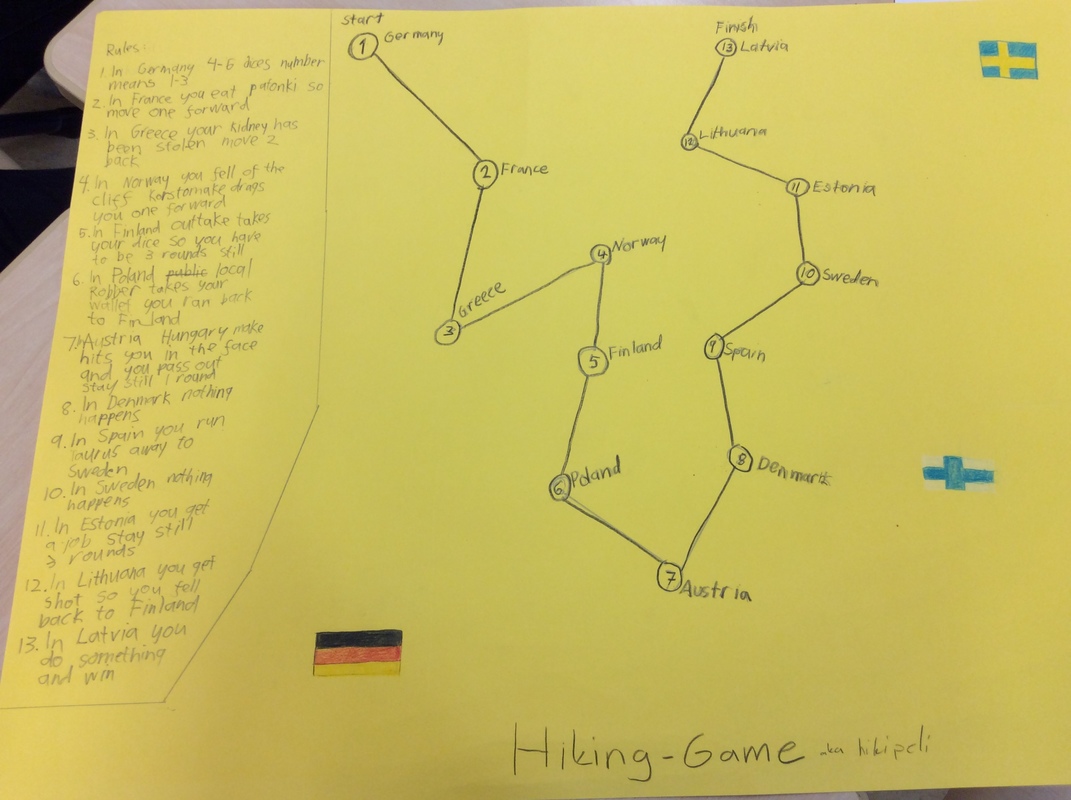 Rules:
1. In Germany 4-6 dices number
means 1-3
2. In France you eat patonki so
move one forward
3. In Greece your kidney has
been stolen move 2
back
4. In Norway you fell of the
cliff Korstornake drags
you one forward
5. In Finland outtake takes
your dice so you have
to be 3 rounds still
6. In Poland public local
Robber takes your
wallet you ran back
to Finland
7. Austria Hungary make
hits you in the face
and you pass out
stay still 1 round
8. In Denmark nothing
happens
9. In Spain you run
Taurus away to
Sweden
10. In Sweden nothing
happens
11. In Estonia you get
a job stay still
3 rounds
12. In Lithuana you get
shot so you fell
back to Finland
13. In Latvia you
do something
and win
Start
1 Germany
2 France
3 Greece
4 Norway
5 Finland
6 Poland
7 Austria
8 Denmark
9 Spain
10 Sweden
11 Estonia
12 Lithuania
Finish
13 Latvia
Hiking-Game -ka hikipeli